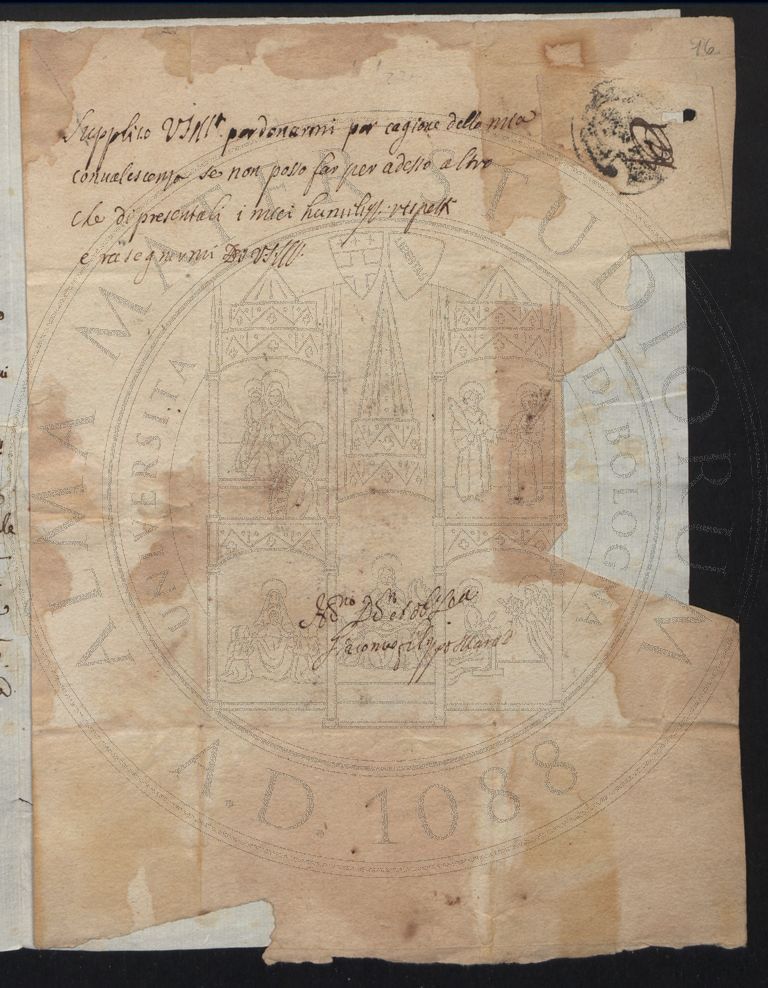 16
Supplico VS Ill.ᵃ perdonarmi per cagione della mia
convalescenza se non poso far per adesso altro
che di presentali i miei humiliss. rispeti
e rasegnarmi Di VS Ill.
Giacomo Filippo Marad
ALMA MATER STUDIORUM
UNIVERSITA DI BOLOGNA
LIBERTAS
A.D. 1088